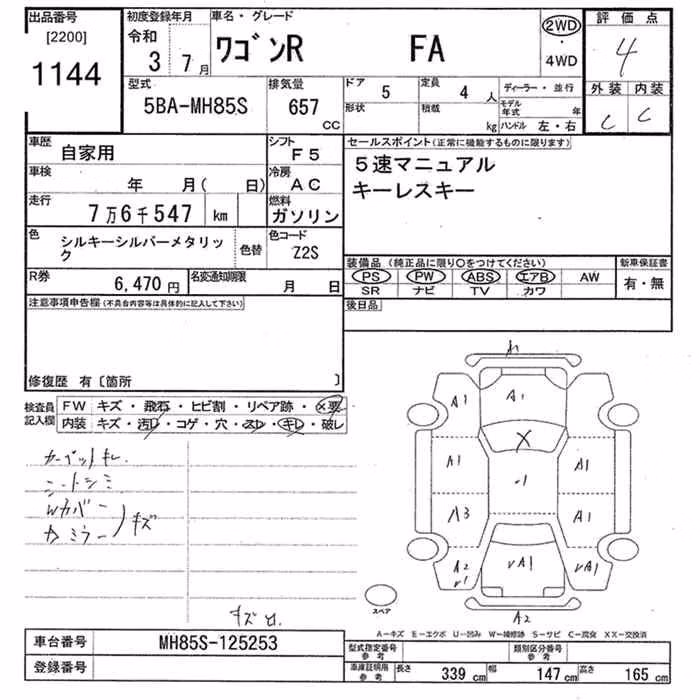 出品番号
[2200]
1144
初度登録年月
令和
3 7月
車名・グレード
ワゴンR FA
2WD
・
4WD
評価点
4
外装 内装
C C
型式
5BA-MH85S
排気量
657
CC
ドア 5
形状
定員 4 人
積載 kg
ディーラー・並行
モデル
年式 年
ハンドル 左・右
車歴
自家用
シフト
F5
車検
年 月( 日)
冷房
AC
走行
7万6千547 km
燃料
ガソリン
色
シルキーシルバーメタリッ
ク
色替
色コード
Z2S
R券
6,470円
名変通知期限
月 日
セールスポイント(正常に機能するものに限ります)
5速マニュアル
キーレスキー
装備品 (純正品に限り○をつけてください)
PS PW ABS エアB AW
SR ナビ TV カワ
新車保証書
有・無
後日品
注意事項申告欄(不具合内容等は具体的に記入して下さい)
修復歴 有〔箇所 〕
検査員
記入欄
FW キズ・飛石・ヒビ割・リペア跡・×要
内装 キズ・汚レ・コゲ・穴・スレ・キレ・破レ
カーペットキレ
シートシミ
Wカバー
カミラー
キズ
A1
A1 A1
X
A1 -1 A1
A3 A1
A2
V1
VA1 VA1
A2
スペア
A-キズ E-エクボ U-凹み W-補修跡 S-サビ C-腐食 XX-交換済
車台番号
MH85S-125253
登録番号
型式指定番号
参考
類別区分番号
参考
車庫証明用
参考
長さ 339 cm 幅 147 cm 高さ 165 cm